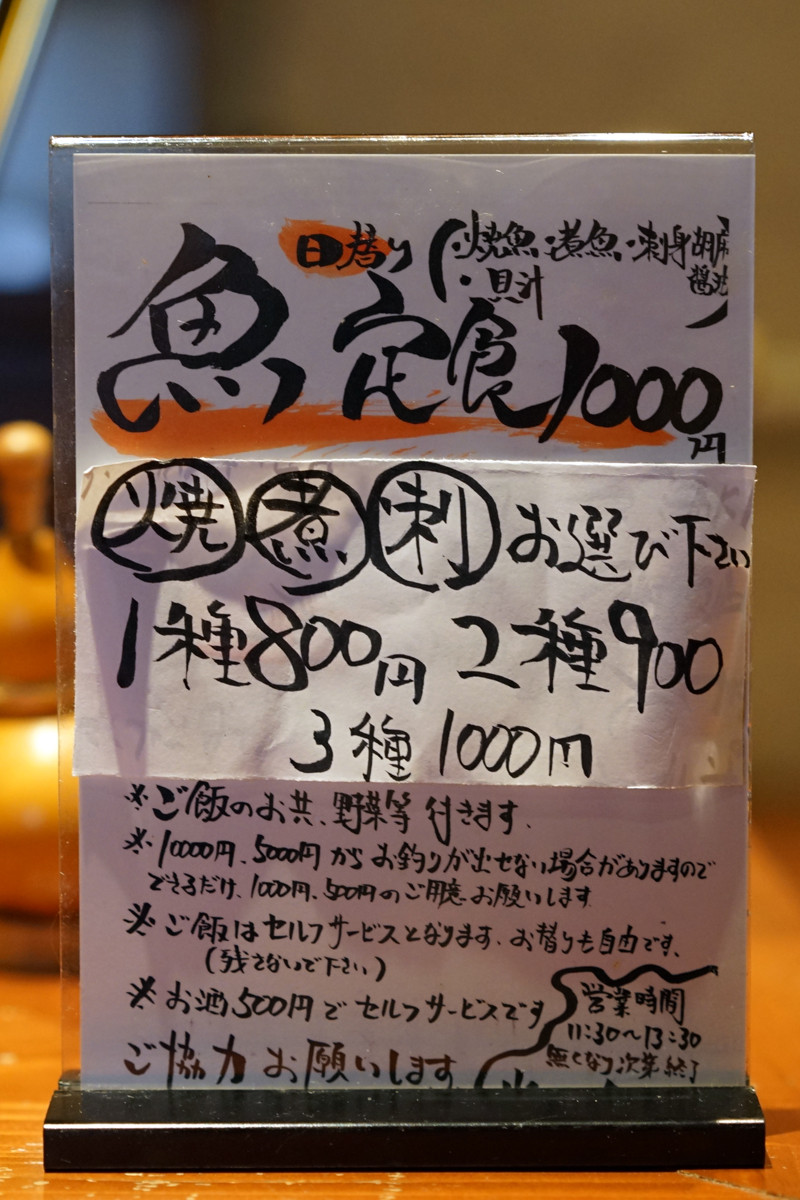 日替り(・焼魚・煮魚・刺身 胡麻醤油
・貝汁)
魚定食1000円
焼 煮 刺 お選び下さい
1種800円 2種900
3種 1000円
※ご飯のお共、野菜等 付きます、
※10000円、5000円からお釣りが出せない場合がありますので
できるだけ、1000円、500円のご用意 お願いします
※ご飯はセルフサービスとなります、お替りも自由です、
(残さないで下さい)
※お酒500円でセルフサービスです
ご協力お願いします
営業時間
11:30〜13:30
無くなり次第 終了